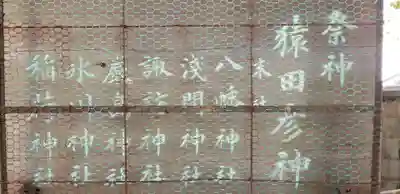 祭神
猿田彦神
末社
八幡神社
浅間神社
諏訪神社
鹿島神社
氷川神社
稲荷神社